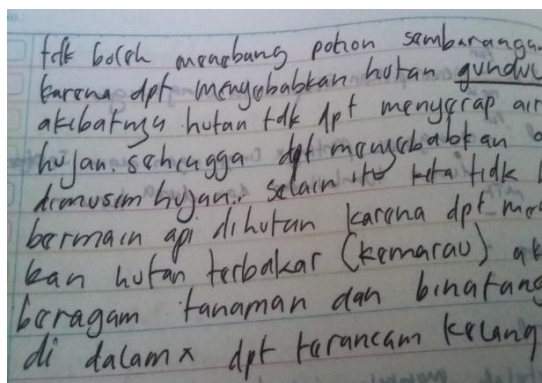 tdk boleh menebang pohon sembarangan
karena dpt menyebabkan hutan gundul
akibatnya hutan tdk dpt menyerap air
hujan. sehingga dpt menyebabkan
dimusim hujan. selain itu kita tidk
bermain api dihutan karena dpt me
kan hutan terbakar (kemarau) ak
beragam tanaman dan binatang
di dalamx dpt terancam kelang